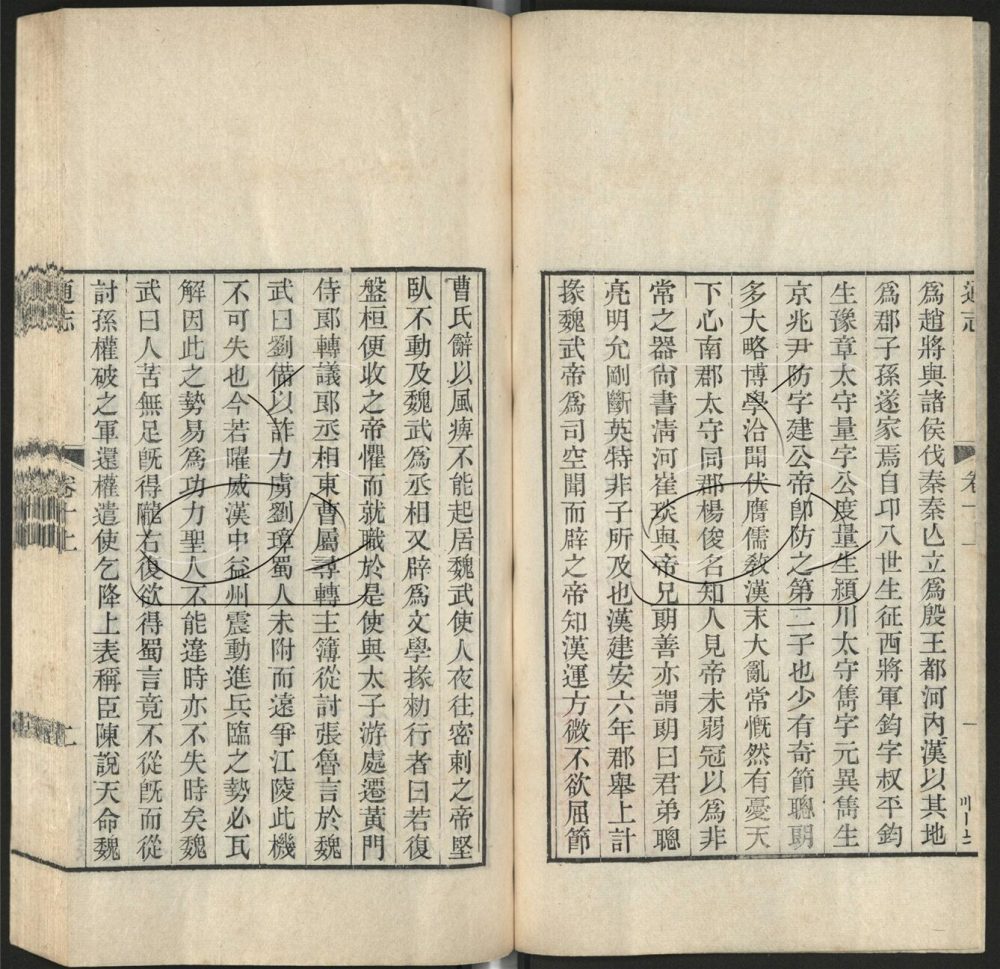 爲趙將與諸侯伐秦秦亾立爲殷王都河內漢以其地
爲郡子孫遂家焉自卭八世生征西將軍鈞字叔平鈞
生豫章太守量字公度量生潁川太守雋字元異雋生
京兆尹防字建公帝卽防之第二子也少有奇節聰朙
多大略博學洽聞伏膺儒敎漢末大亂常慨然有憂天
下心南郡太守同郡楊俊名知人見帝未弱冠以爲非
常之器尙書淸河崔琰與帝兄朗善亦謂朗曰君弟聰
亮明允剛斷英特非子所及也漢建安六年郡舉上計
掾魏武帝爲司空聞而辟之帝知漢運方微不欲屈節
曹氏辭以風痹不能起居魏武使人夜往密刺之帝堅
臥不動及魏武爲丞相又辟爲文學掾勑行者曰若復
盤桓便收之帝懼而就職於是使與太子游處遷黃門
侍郞轉議郞丞相東曹屬尋轉主簿從討張魯言於魏
武曰劉備以詐力虜劉璋蜀人未附而遠爭江陵此機
不可失也今若曜威漢中益州震動進兵臨之勢必瓦
解因此之勢易爲功力聖人不能違時亦不失時矣魏
武曰人苦無足旣得隴右復欲得蜀言竟不從旣而從
討孫權破之軍還權遣使乞降上表稱臣陳說天命魏
通志
卷十上